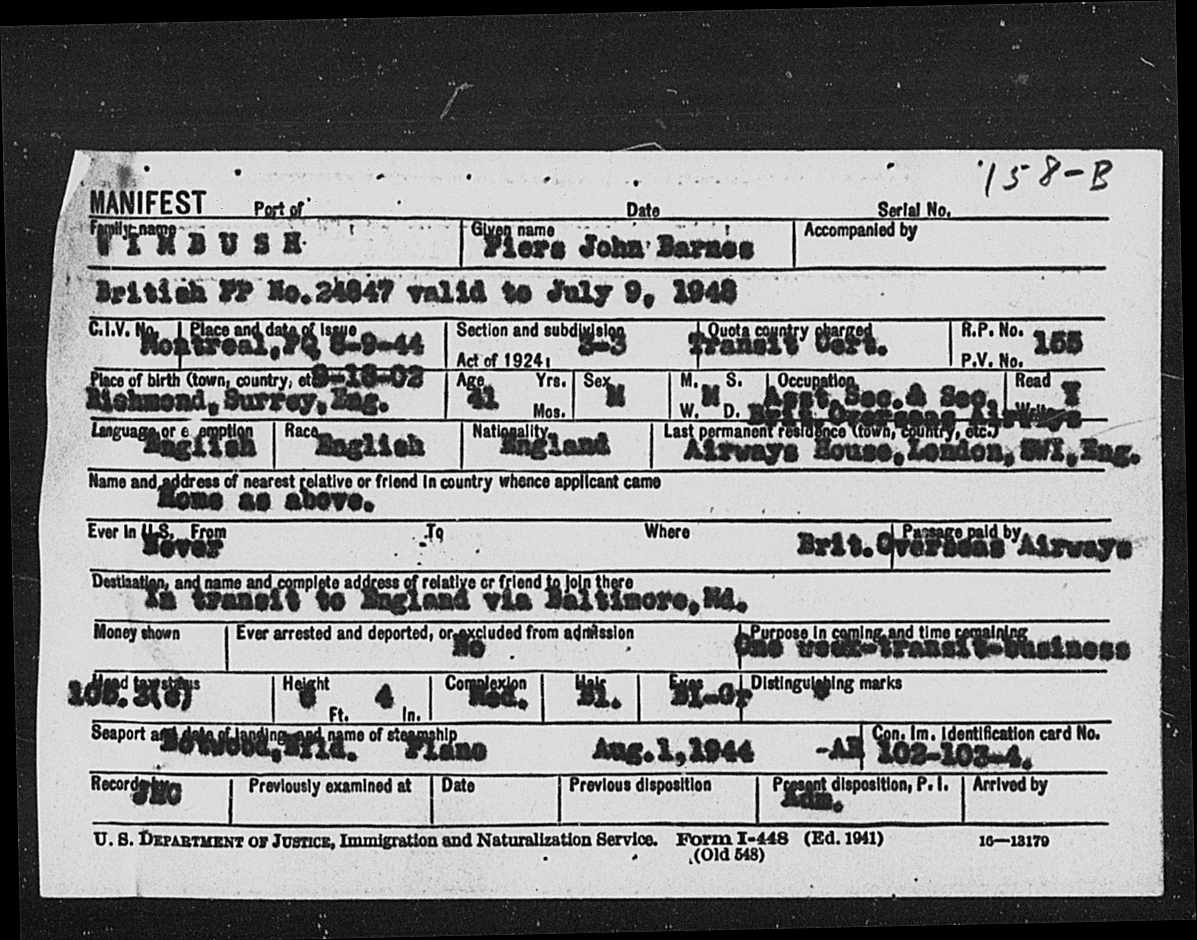 158-B
MANIFEST Port of Date Serial No.
Family name Given name Accompanied by
WIMBUSH Piers John Barnes
British PP No.24847 valid to July 9, 1948
C.I.V. No. Place and date of issue Section and subdivision Quota country charged R.P. No. 155
Montreal,PQ -9-44 Act of 1924: 3-3 Transit Cert. P.V. No.
Place of birth (town, country, etc. Age Yrs. Sex M. S. Occupation Read Y
Richmond, Surrey, Eng. 41 Mos. M W. M D. Asst Sec.& Sec. Write
Brit Overseas Airways
Language or exemption Race Nationality Last permanent residence (town, country, etc.)
English English England Airways House,London,SW1,Eng.
Name and address of nearest relative or friend in country whence applicant came
Home as above.
Ever in U.S. From To Where Passage paid by
Never Brit.Overseas Airways
Destination, and name and complete address of relative or friend to join there
In transit to England via Baltimore,Md.
Money shown Ever arrested and deported, or excluded from admission Purpose in coming and time remaining
No One week-transit-business
Head tax status Height Complexion Hair Eyes Distinguishing marks
105.3( ) 6 Ft. 4 In. Med. Bl. Bl-Gr
Seaport and date of landing, and name of steamship Con. Im. Identification card No.
Botwood,Nfld. Plane Aug.1,1944 102-103-4.
Record by Previously examined at Date Previous disposition Present disposition, P. I. Arrived by
Adm.
U. S. DEPARTMENT OF JUSTICE, Immigration and Naturalization Service. Form I-448 (Ed. 1941) 16—13179
(Old 548)